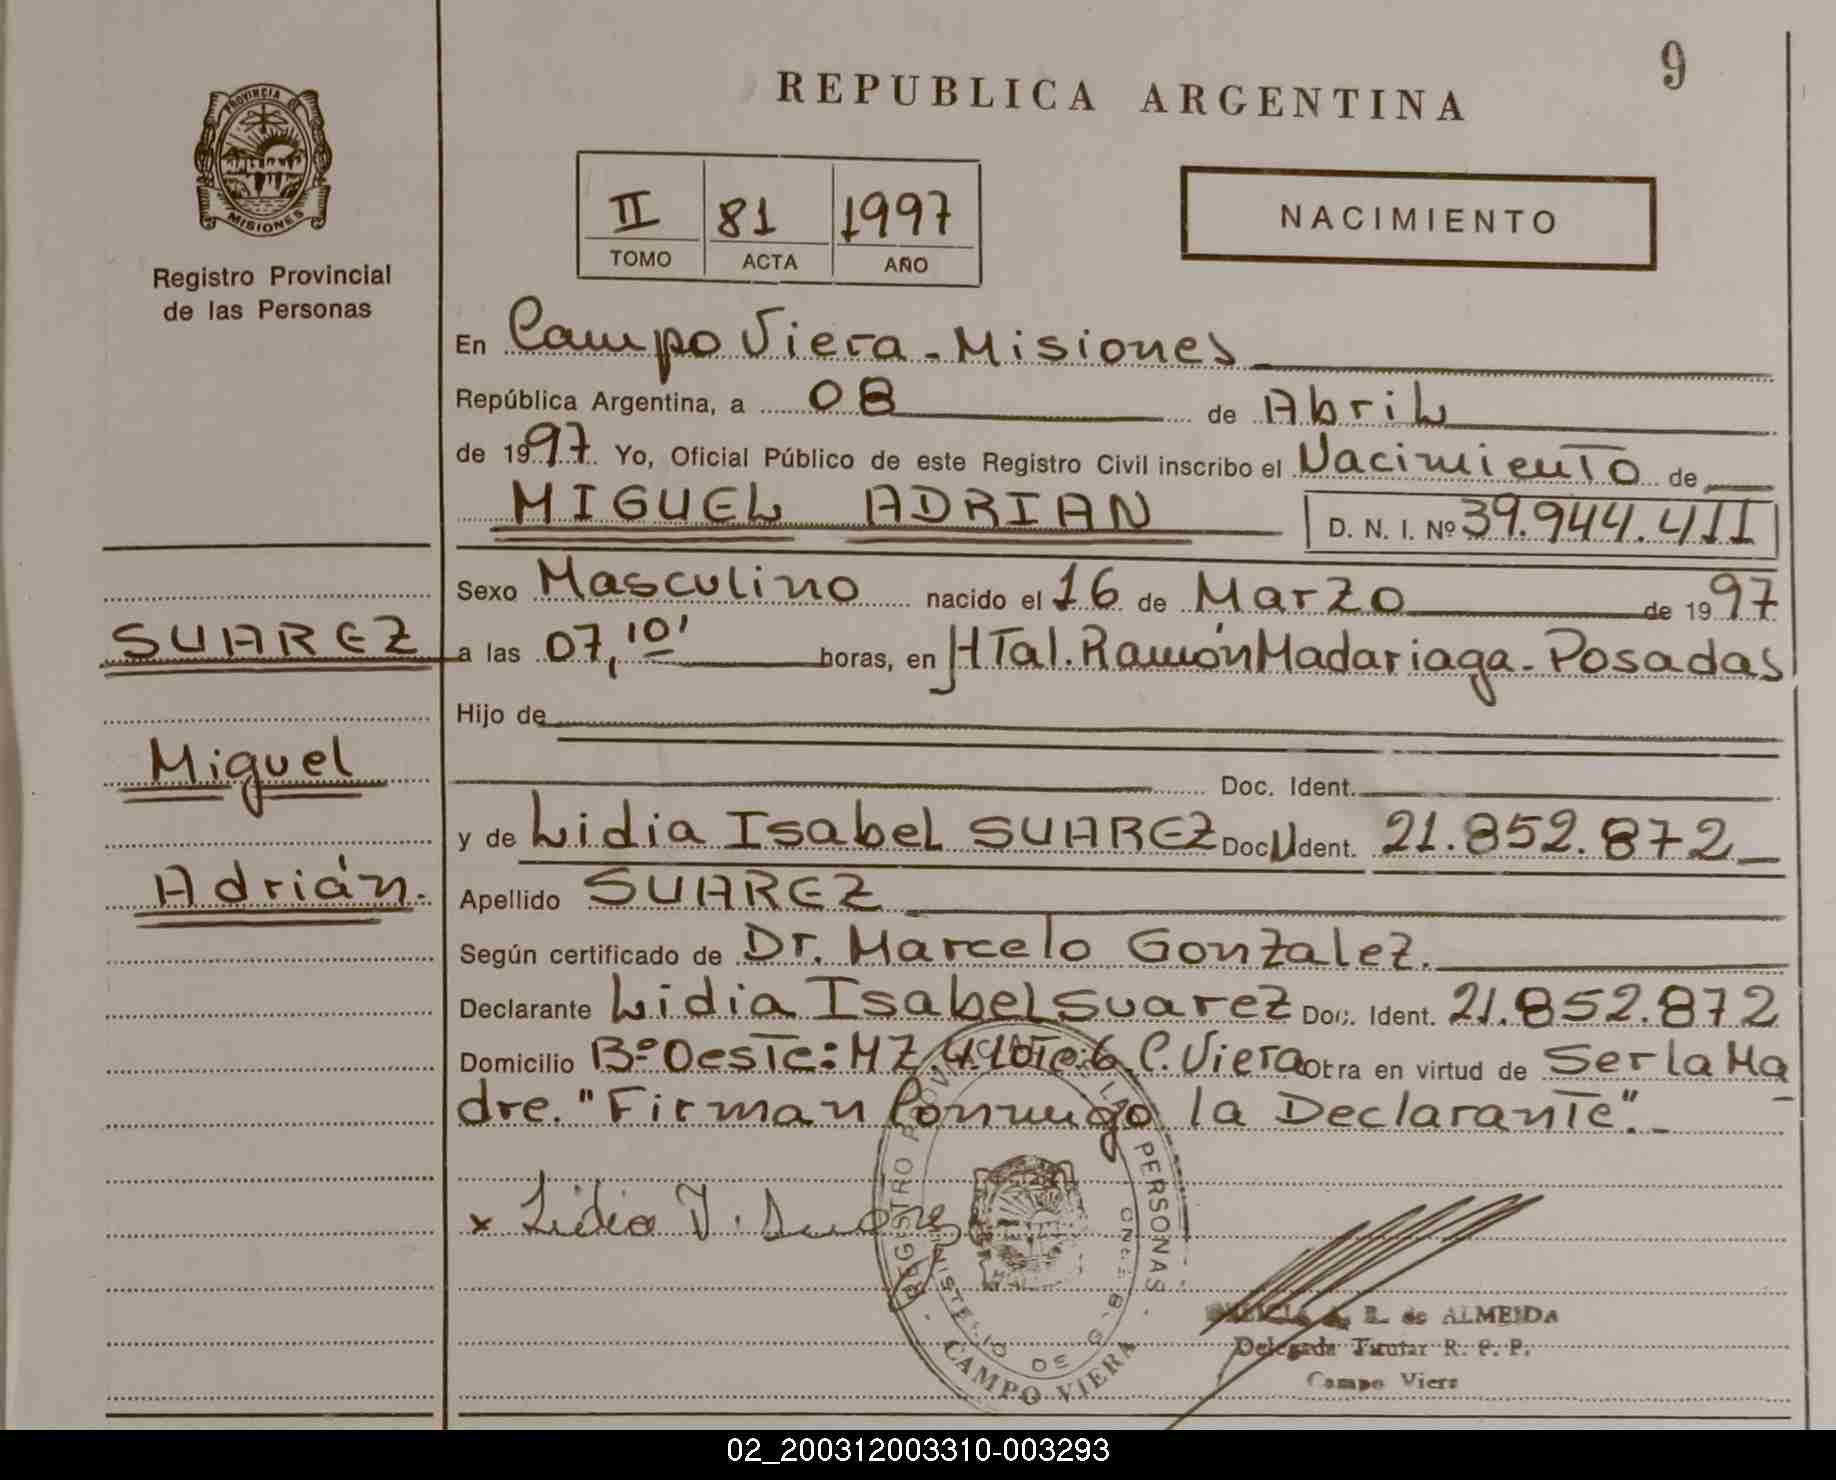 9
REPUBLICA ARGENTINA
PROVINCIA DE
MISIONES
Registro Provincial
de las Personas
II 81 1997
TOMO ACTA AÑO
NACIMIENTO
En Campo Viera - Misiones
República Argentina, a 08 de Abril
de 1997. Yo, Oficial Público de este Registro Civil inscribo el Nacimiento de
MIGUEL ADRIAN D. N. I. Nº 39.944.411
Sexo Masculino nacido el 16 de Marzo de 1997
SUAREZ
a las 07,10' horas, en HTal. Ramón Madariaga - Posadas
Hijo de
Miguel
Doc. Ident.
y de Lidia Isabel SUAREZ Doc U Ident. 21.852.872
Adrián.
Apellido SUAREZ
Según certificado de Dr. Marcelo Gonzalez.
Declarante Lidia Isabel Suarez Doc. Ident. 21.852.872
Domicilio Bº Oeste: MZ. 4 Lote: 6 C. Viera Obra en virtud de Ser la Ma
dre. "Firman Conmigo la Declarante".-
x Lidia I. Suarez
REGISTRO PROVINCIAL DE LAS PERSONAS
MINISTERIO DE GOB
CAMPO VIERA
R. de ALMEIDA
Delegada Titular R. P. P.
Campo Viera
02_200312003310-003293